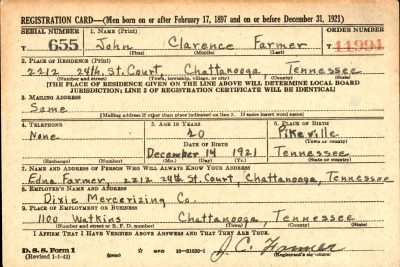 REGISTRATION CARD—(Men born on or after February 17, 1897 and on or before December 31, 1921)
SERIAL NUMBER 1. NAME (Print) ORDER NUMBER
T 655 John Clarence Farmer T 11991
(First) (Middle) (Last)
2. PLACE OF RESIDENCE (Print)
2212 24th St. Court Chattanooga Tennessee
(Number and street) (Town, township, village, or city) (County) (State)
[THE PLACE OF RESIDENCE GIVEN ON THE LINE ABOVE WILL DETERMINE LOCAL BOARD
JURISDICTION; LINE 2 OF REGISTRATION CERTIFICATE WILL BE IDENTICAL]
3. MAILING ADDRESS
Same
[Mailing address if other than place indicated on line 2. If same insert word same]
4. TELEPHONE 5. AGE IN YEARS 6. PLACE OF BIRTH
None 20 Pikeville
DATE OF BIRTH (Town or county)
December 14 1921 Tennessee
(Exchange) (Number) (Mo.) (Day) (Yr.) (State or country)
7. NAME AND ADDRESS OF PERSON WHO WILL ALWAYS KNOW YOUR ADDRESS
Edna Farmer 2212 24th St. Court, Chattanooga, Tennessee
8. EMPLOYER'S NAME AND ADDRESS
Dixie Mercerizing Co.
9. PLACE OF EMPLOYMENT OR BUSINESS
1100 Watkins Chattanooga, Tennessee
(Number and street or R. F. D. number) (Town) (County) (State)
I AFFIRM THAT I HAVE VERIFIED ABOVE ANSWERS AND THAT THEY ARE TRUE.
D. S. S. Form 1 GPO 16—21630-1 J. C. Farmer
(Revised 1-1-42) (over) (Registrant's signature)